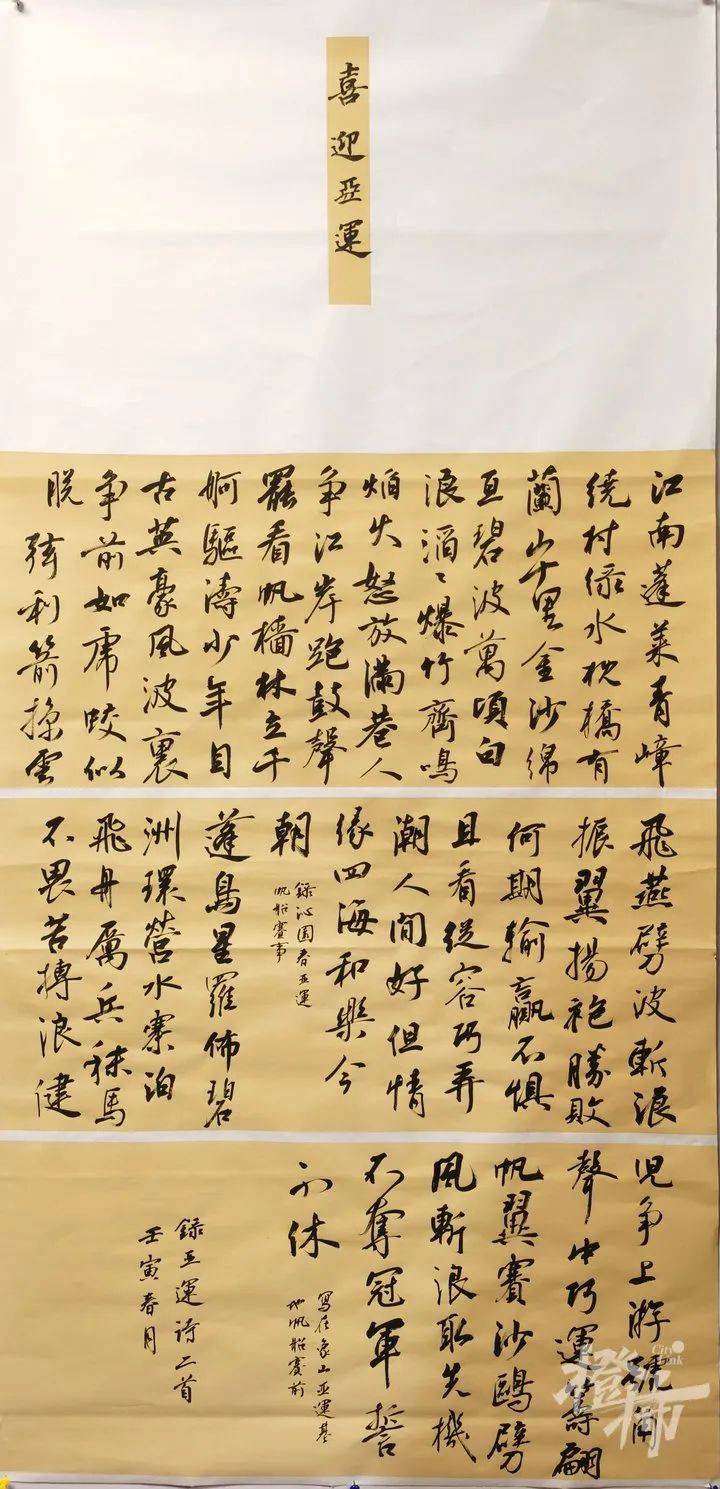 喜迎亞運
江南蓬莱青嶂
繞村綠水枕橋有
蘭山千里金沙綿
亘碧波萬頃白
浪滔〻爆竹齊鳴
焰火怒放滿巷人
争江岸跑鼓聲
罷看帆檣林立千
舸驅濤少年自
古英豪風波裏
争前如虎蛟似
脱弦利箭掠雲
飛燕劈波斬浪
振翼揚袍勝敗
何期輸贏不惧
且看從容巧弄
潮人間好但情
缘四海和樂今
朝
錄沁園春亞運
帆船賽事
蓬島星羅佈碧
洲環營水寨泊
飛舟厲兵秣馬
不畏苦搏浪健
児争上游號角
聲中巧運籌翩
帆翼賽沙鷗劈
風斬浪取先機
不奪冠軍誓
不休
寫在象山亞運基
地帆船賽前
錄亞運詩二首
壬寅春月
橙柿
City Link